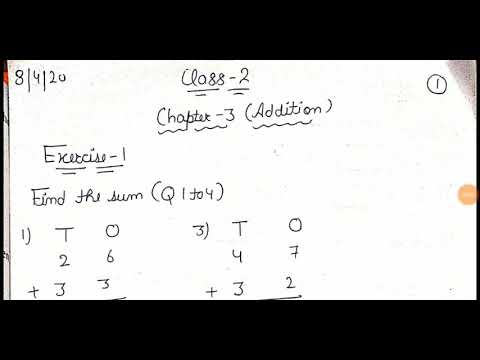 8/4/20
Class-2
1
Chapter-3 (Addition)
Exercise-1
Find the sum (Q 1 to 4)
1) T O 3) T O
2 6 4 7
+ 3 3 + 3 2